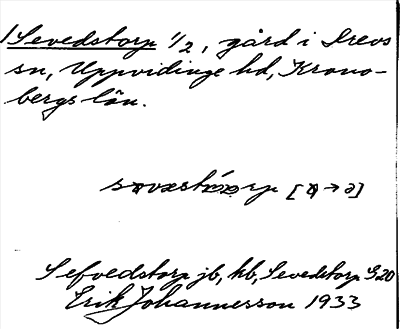 Sevedstorp 1/2, gård i Drevs
sn, Uppvidinge hd, Krono-
bergs län.
Sefvedstorp jb, hb, Sevedstorp G20
Erik Johannesson 1933